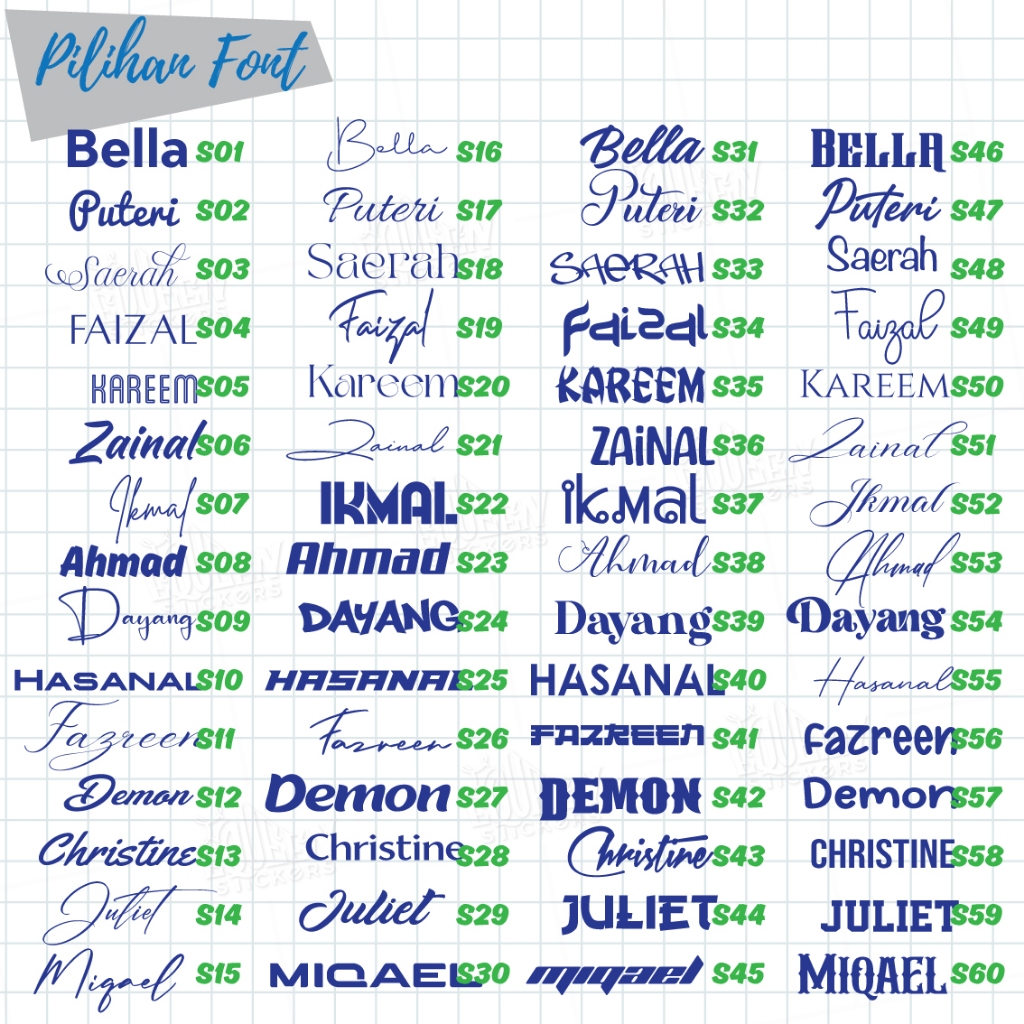 Pilihan Font
Bella S01 Bella S16 Bella S31 BELLA S46
Puteri S02 Puteri S17 Puteri S32 Puteri S47
Saerah S03 Saerah S18 SAERAH S33 Saerah S48
FAIZAL S04 Faizal S19 Faizal S34 Faizal S49
KAREEM S05 Kareem S20 KAREEM S35 KAREEM S50
Zainal S06 Zainal S21 ZAiNAL S36 Zainal S51
Ikmal S07 IKMAL S22 ikmal S37 Ikmal S52
Ahmad S08 Ahmad S23 Ahmad S38 Ahmad S53
Dayang S09 DAYANG S24 Dayang S39 Dayang S54
HASANAL S10 HASANAL S25 HASANAL S40 Hasanal S55
Fazreen S11 Fazreen S26 FAZREEN S41 Fazreen S56
Demon S12 Demon S27 DEMON S42 Demon S57
Christine S13 Christine S28 Christine S43 CHRISTINE S58
Juliet S14 Juliet S29 JULIET S44 JULIET S59
Miqael S15 MIQAEL S30 miqael S45 MIQAEL S60